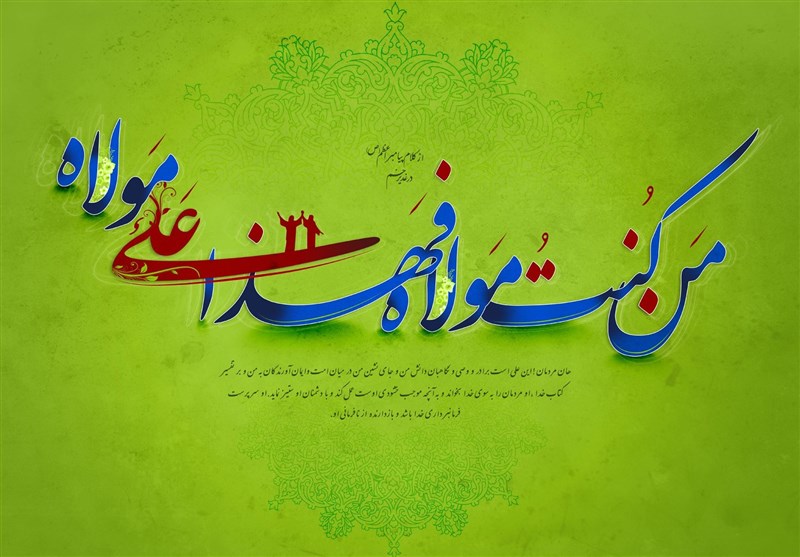 از کلام پیامبر اعظم(ص)
در غدیر خم
مَن کُنتُ مَولاه فَهذا عَلی مَولاه
هان مردمان! این علی است برادر و وصی و نگاهبان دانش من و جای نشین من در میان امت و ایمان آورندگان به من و بر تفسیر
کتاب خدا، او مردمان را به سوی خدا بخواند و به آنچه موجب خشنودی اوست عمل کند و با دشمنان او ستیز نماید. او سرپرست
فرمانبرداری خدا باشد و بازدارنده از نافرمانی او.